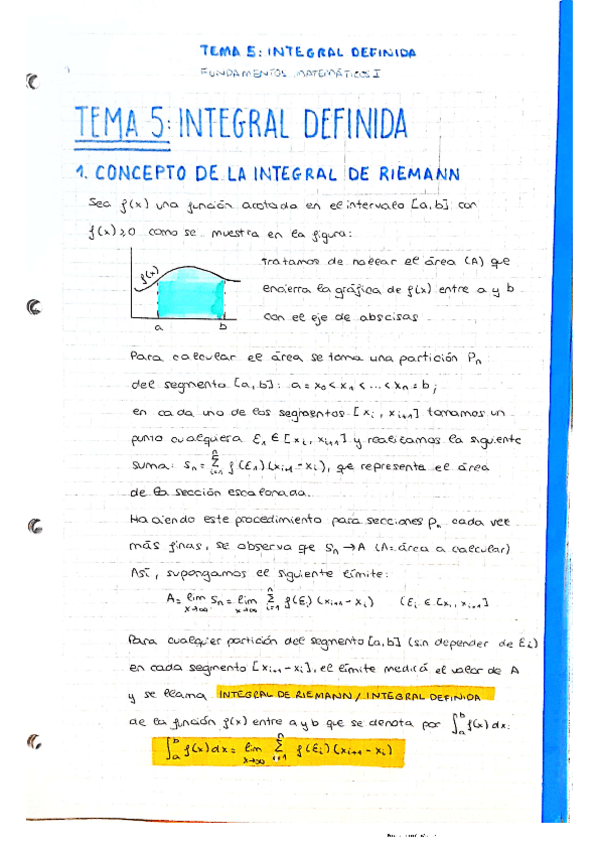 TEMA 5: INTEGRAL DEFINIDA
FUNDAMENTOS MATEMÁTICOS I
TEMA 5: INTEGRAL DEFINIDA
1. CONCEPTO DE LA INTEGRAL DE RIEMANN
Sea f(x) una función acotada en el intervalo [a,b] con
f(x)≥0 como se muestra en la figura:
f(x)
a b
Tratamos de hallar el área (A) que
encierra la gráfica de f(x) entre a y b
con el eje de abscisas
Para calcular el área se toma una partición Pn
del segmento [a,b]: a = x₀ < x₁ < ... < xn = b;
en cada uno de los segmentos [xi, xi+1] tomamos un
punto cualquiera Ɛ1 ∈ [xi, xi+1] y realizamos la siguiente
suma: Sn = Σ(i=1, n) f(Ɛ1)(xi+1 - xi), que representa el área
de la sección escalonada.
Haciendo este procedimiento para secciones Pn cada vez
más finas, se observa que Sn → A (A=área a calcular)
Así, supongamos el siguiente límite:
A = lim x→∞ Sn = lim x→∞ Σ(i=1, n) f(Ɛi)(xi+1 - xi) (Ɛi ∈ [xi, xi+1]
Para cualquier partición del segmento [a,b] (sin depender de Ɛi)
en cada segmento [xi+1 - xi], el límite medirá el valor de A
y se llama INTEGRAL DE RIEMANN / INTEGRAL DEFINIDA
de la función f(x) entre a y b que se denota por ∫ₐᵇ f(x)dx:
∫ₐᵇ f(x)dx = lim x→∞ Σ(i=1, n) f(Ɛi)(xi+1 - xi)